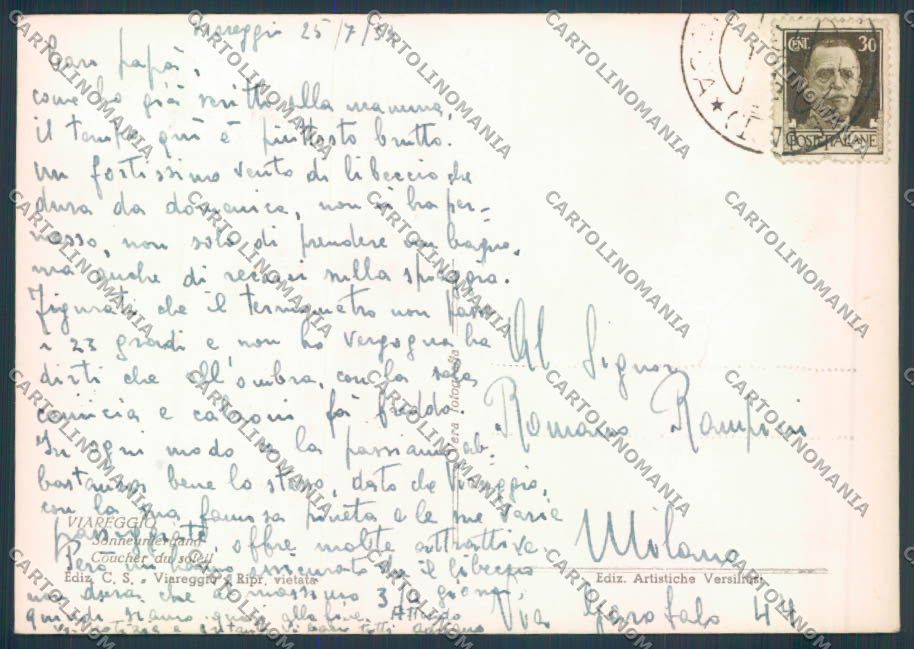 Viareggio 25/7/39
Caro papà,
come ho già scritto alla mamma,
il tempo qui è piuttosto brutto.
Un fortissimo vento di libeccio che
dura da domenica, non ci ha per-
messo, non solo di prendere un bagno,
ma anche di recarci sulla spiaggia.
Figurati che il termometro non passa
i 23 gradi e non ho vergogna ha
dirti che all'ombra, con la sola
camicia e calzoni fa freddo.
In ogni modo ce la passiamo ab-
bastanza bene lo stesso, dato che Viareggio,
con la sua famosa pineta e le sue varie
passeggiate offre molte attrattive.
Però mi hanno assicurato che il libeccio
non dura che al massimo 3 o 4 giorni,
quindi siamo quasi alla fine. Attendo
tutti
VIAREGGIO
Sonnenuntergang
Coucher du soleil
Ediz. C. S. - Viareggio - Ripr. vietata
Vera fotografia
CENT. 30
POSTE ITALIANE
Al Signor
Romano Rampini
Milano
Ediz. Artistiche Versiliesi
Via Garofalo 44
CARTOLINOMANIA